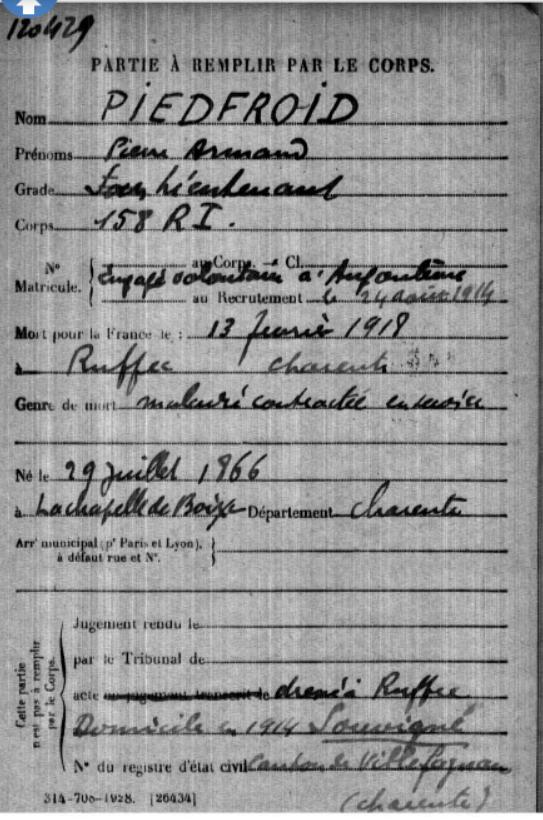 120429
PARTIE À REMPLIR PAR LE CORPS.
Nom PIEDFROID
Prénoms Pierre Armand
Grade Sous Lieutenant
Corps 158 RI.
N° Matricule. { au Corps. — Cl.
Engagé volontaire à Angoulême
au Recrutement le 24 août 1914
Mort pour la France le : 13 février 1918
à Ruffec charente
Genre de mort maladie contractée en service
Né le 29 juillet 1866
à Lachapelle de Département Charente
Arrᵗ municipal (pʳ Paris et Lyon), }
à défaut rue et N°.
Cette partie n'est pas à remplir par le Corps.
Jugement rendu le
par le Tribunal de
acte ou jugement transcrit le dressé à Ruffec
Domicile en 1914 Souvigné
N° du registre d'état civil Canton de Villefagnan
(charente)
314-708-1928. [26434]